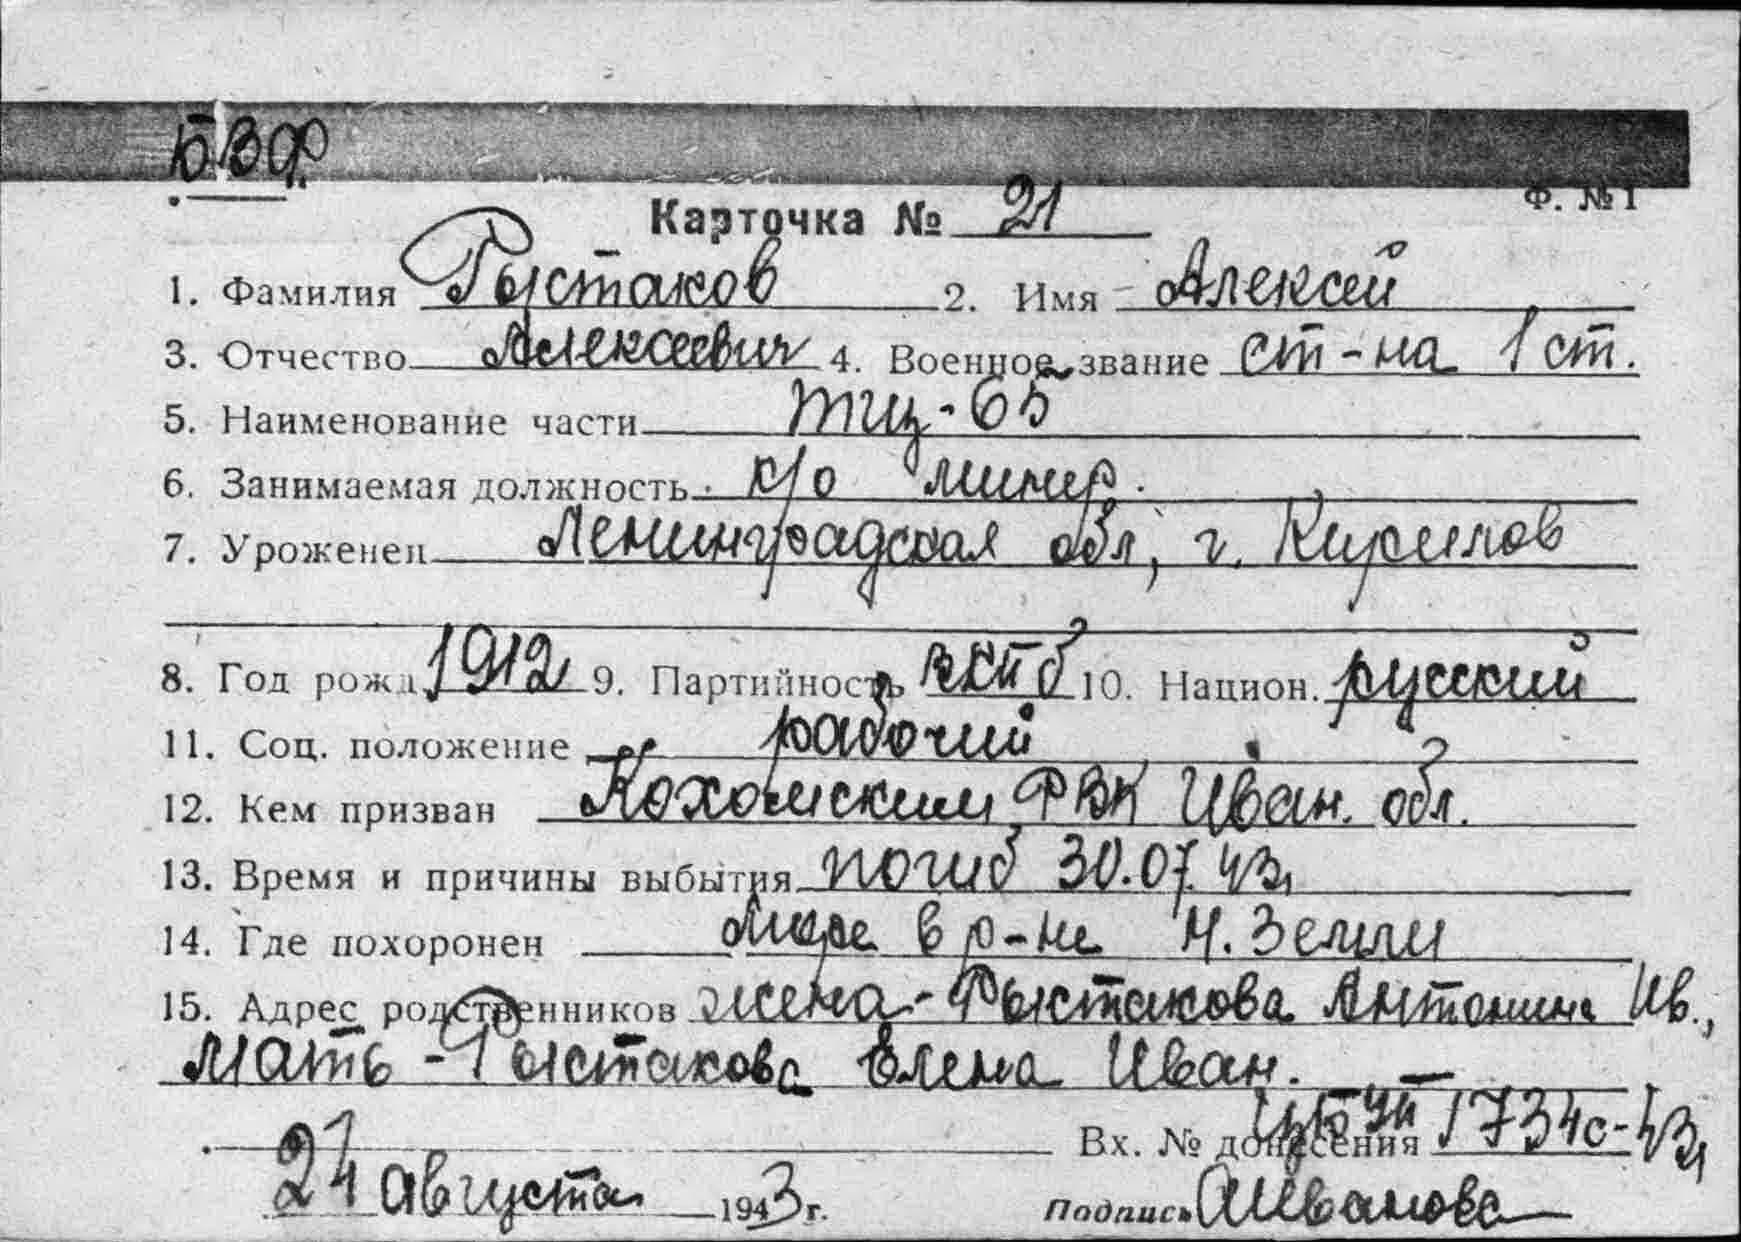 БВФ
Ф. № 1
Карточка № 21
1. Фамилия Рыстаков 2. Имя Алексей
3. Отчество Алексеевич 4. Военное звание ст-на 1 ст.
5. Наименование части тщ-65
6. Занимаемая должность к/о минер.
7. Уроженец Ленинградская обл, г. Кирилов
8. Год рожд 1912 9. Партийность вкпб 10. Национ. русский
11. Соц. положение рабочий
12. Кем призван Кохомским РВК Иван. обл.
13. Время и причины выбытия погиб 30.07.43
14. Где похоронен море в р-не Н. Земли
15. Адрес родственников жена - Рыстакова Антонина Ив.,
мать - Рыстакова Елена Иван.
Вх. № донесения 1734с-43
24 августа 1943 г. Подпись АИванова